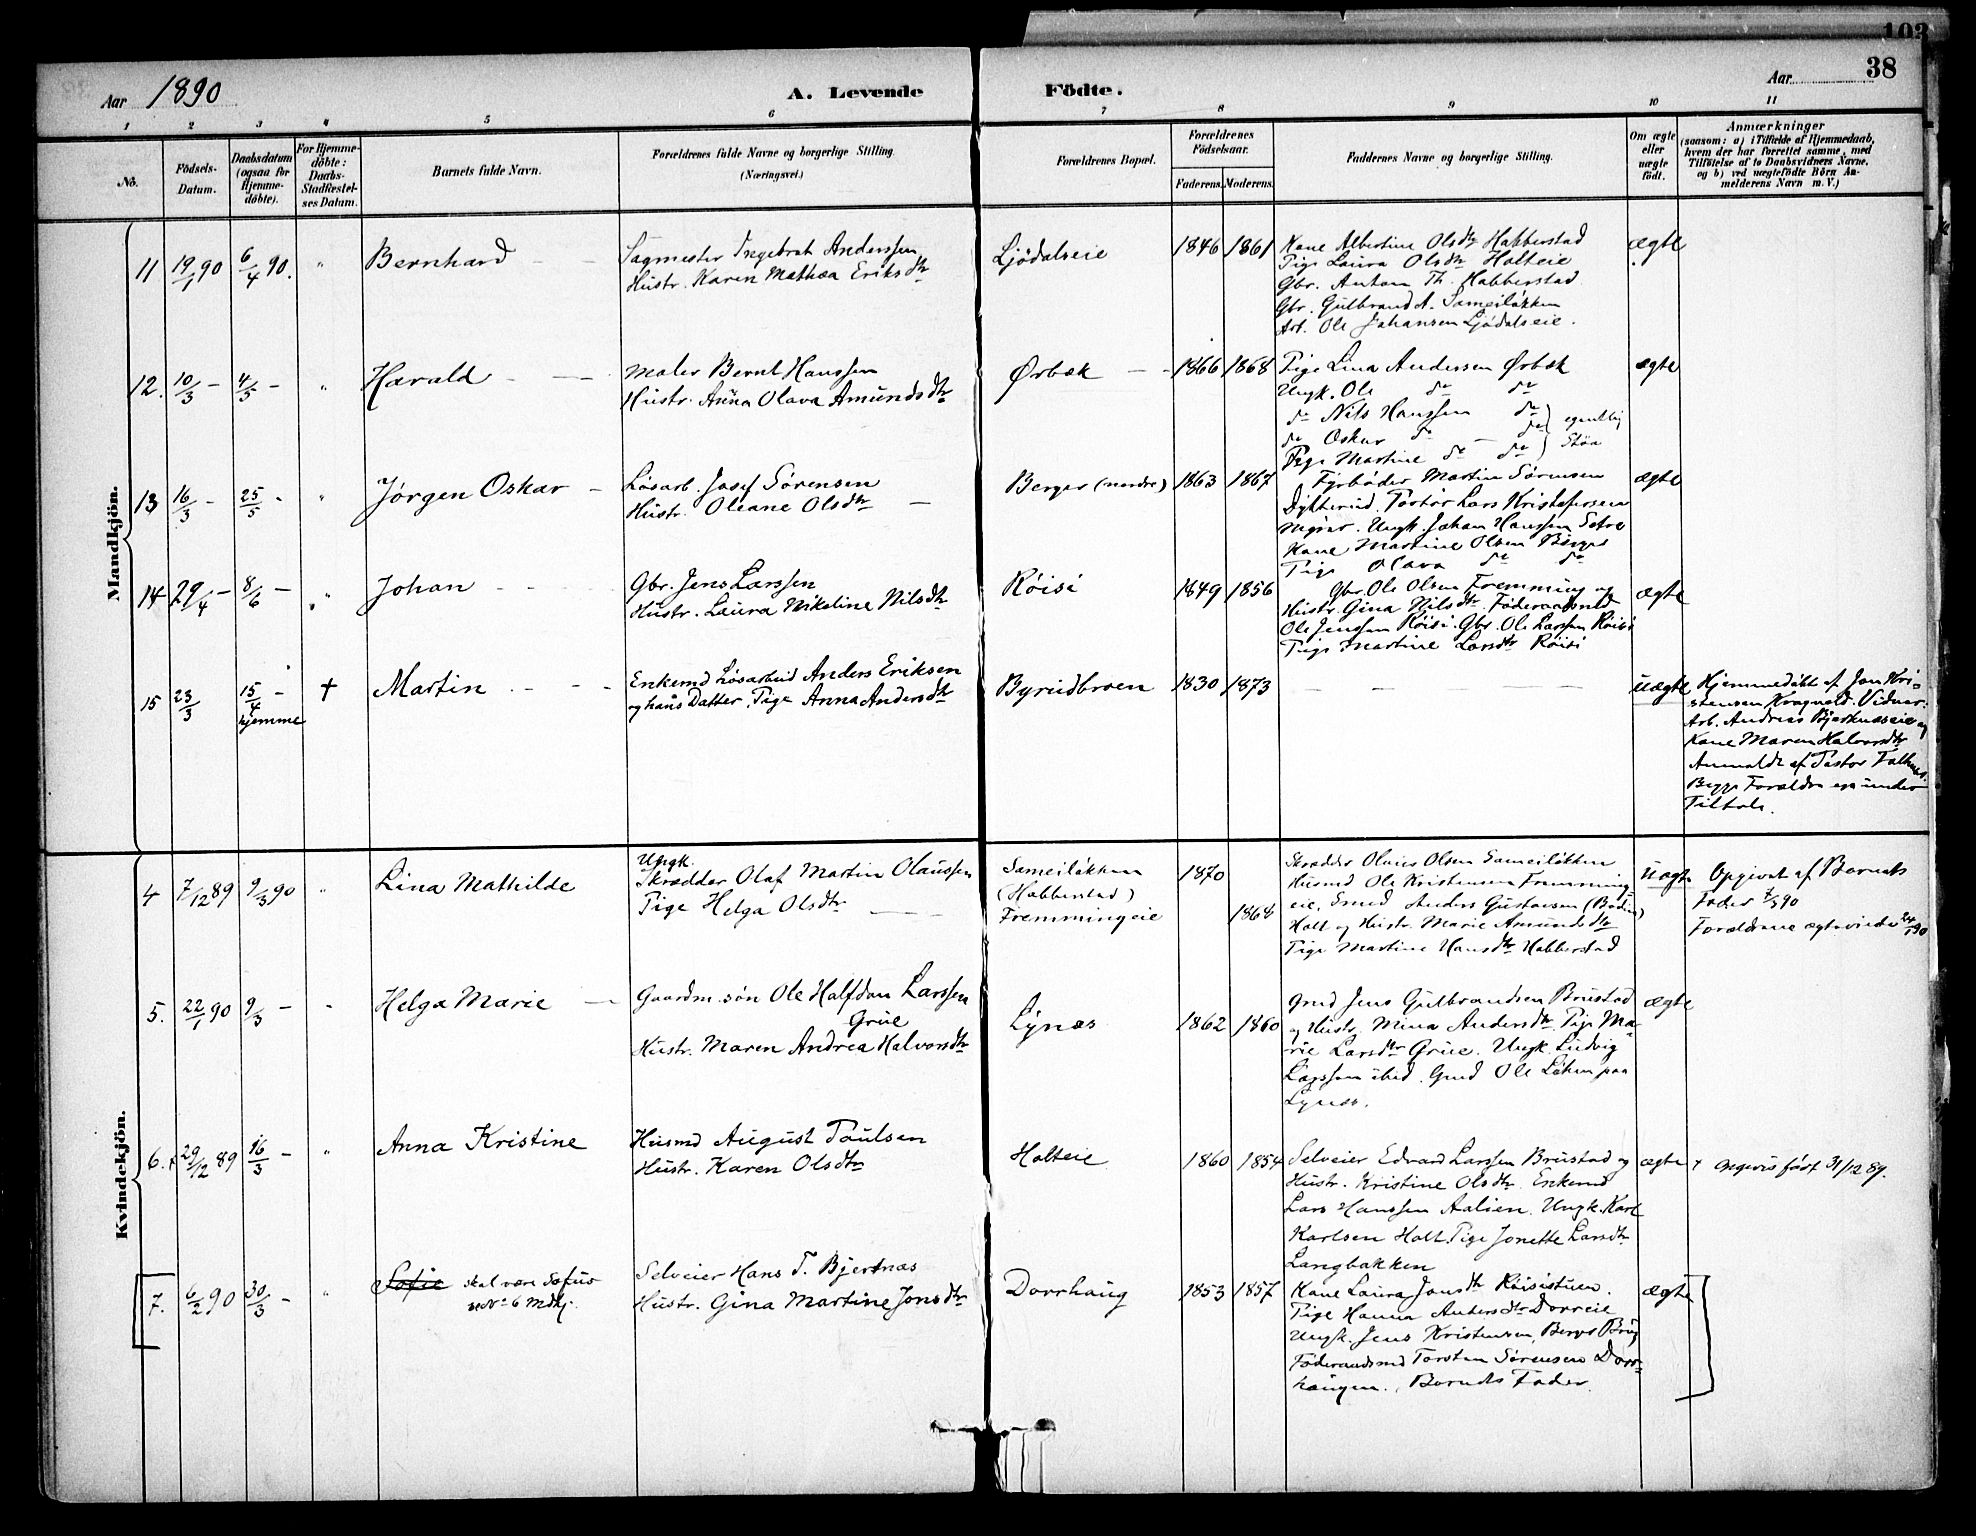 103
38
Aar 1890
A. Levende Födte.
Aar
1 2 3 4 5 6 7 8 9 10 11
No.
Födsels-Datum.
Daabsdatum (ogsaa for Hjemmedöbte).
For Hjemmedöbte: Daabs-Stadfestelses Datum.
Barnets fulde Navn.
Forældrenes fulde Navne og borgerlige Stilling.
(Næringsvei.)
Forældrenes Bopæl.
Forældrenes Födselsaar.
Faderens. Moderens.
Faddernes Navne og borgerlige Stilling.
Om ægte eller uægte födt.
Anmærkninger
(saasom: a) i Tilfælde af Hjemmedaab, hvem der har forrettet samme, med Tilföielse af to Daabsvidners Navne, og b) ved uægtefödte Börn Anmelderens Navn m. V.)
Mandkjön.
11 19/1 90 6/4 90. " Bernhard
Sagmester Ingebret Anderssen
Hustr. Karen Mathea Eriksdtr
Ljödalseie 1846 1861
Kone Albertine Olsdtr Habberstad
Pige Laura Olsdtr Holteie
Gbr. Anton Th. Habberstad
Gbr. Gulbrand A. Sameiløkken
Arb. Ole Johansen Ljödalseie.
ægte
12. 10/3 - 4/5 - " Harald
Maler Bernt Hanssen
Hustr. Anna Olava Amundsdtr
Ørbæk 1866 1868
Pige Lina Andersen Ørbæk
Ungk. Ole do do
do Nils Hanssen do
do Oskar do - do egentlig
Pige Martine do do Stöa
ægte
13 16/3 - 25/5 - " Jørgen Oskar
Løsarb. Josef Sørensen
Hustr. Oleane Olsdtr
Berger (nordre) 1863 1867
Fyrbøder Martin Sørensen
Dytterud. Lars Kristofersen
Ungk. Johan Hanssen
Kone Martine Olsen Berger
Pige Olava do do
ægte
14 29/4 - 8/6 - " Johan
Gbr. Jens Larssen
Hustr. Laura Nikoline Nilsdtr
Röisi 1849 1856
Gbr. Ole Olsen Fremming og
Hustr. Gina Nilsdtr. Föderaadsmd
Ole Jenssen Röisi. Gbr. Ole Larssen Röisi
Pige Martine Larsdtr Röisi
ægte
15 23/3 15/4 - hjemme † Martin
Enkemd Løsarbeid Anders Eriksen
og hans Datter, Pige Anna Andersdtr
Byrudbroen 1830 1873
uægte
Hjemmedöbt af Jon Kri-
stensen Kragvold. Vidner.
Arb. Andreas Bjerknæseie og
Kone Maren Halvorsdtr
Anmeldt af Pastor
Begge Forældre ere under
Tiltale.
Kvindekjön.
4 7/12 89 9/3 90 " Lina Mathilde
Ungk.
Skrædder Olaf Martin Olaussen
Pige Helga Olsdtr
Sameiløkken
(Habberstad)
Fremmingeie
1870
1868
Skrædder Olaus Olsen Sameiløkken
Husmd Ole Kristensen Fremming-
eie. Smed Anders Gustavsen
Holt og Hustr. Marie Amundsdtr
Pige Martine Hansdtr Habberstad
uægte
Opgivet af Barnets
Fader
Forældrene ægteviede
5. 22/1 90 9/3 - " Helga Marie
Gaardm.sön Ole Halfdan Larssen
Grue
Hustr. Maren Andrea Halvorsdtr
Lynæs 1862 1860
Gmd Jens Gulbrandsen Brustad
og Hustr. Mina Andersdtr. Pige Ma-
rie Larsdtr Grue. Ungk. Ludvig
Larssen ibid. Gmd Ole Løken paa
Lynæs.
ægte
6. + 29/12 89 16/3 - " Anna Kristine
Husmd August Paulsen
Hustr. Karen Olsdtr
Holteie 1860 1854
Selveier Edvard Larssen Brustad og
Hustr. Kristine Olsdtr. Enkemd
Lars Hanssen Aalien. Ungk. Karl
Karlsen Holt. Pige Jonette Larsdtr
Langbakken
ægte
+ födt 31/12 89.
7. 6/2 90 30/3 - " Sofie skal være Sofus
se No 6 Mdkj.
Selveier Hans T. Bjertnæs
Hustr. Gina Martine Jonsdtr
Dorrhaug 1853 1857
Kone Laura Jonsdtr Röisistuen.
Pige Hanna Andersdtr Dorreie
Ungk. Jens Kristensen, Bergs Brug
Föderaadsmd Torsten Sørensen Dorr-
haugen. Barnets Fader.
ægte